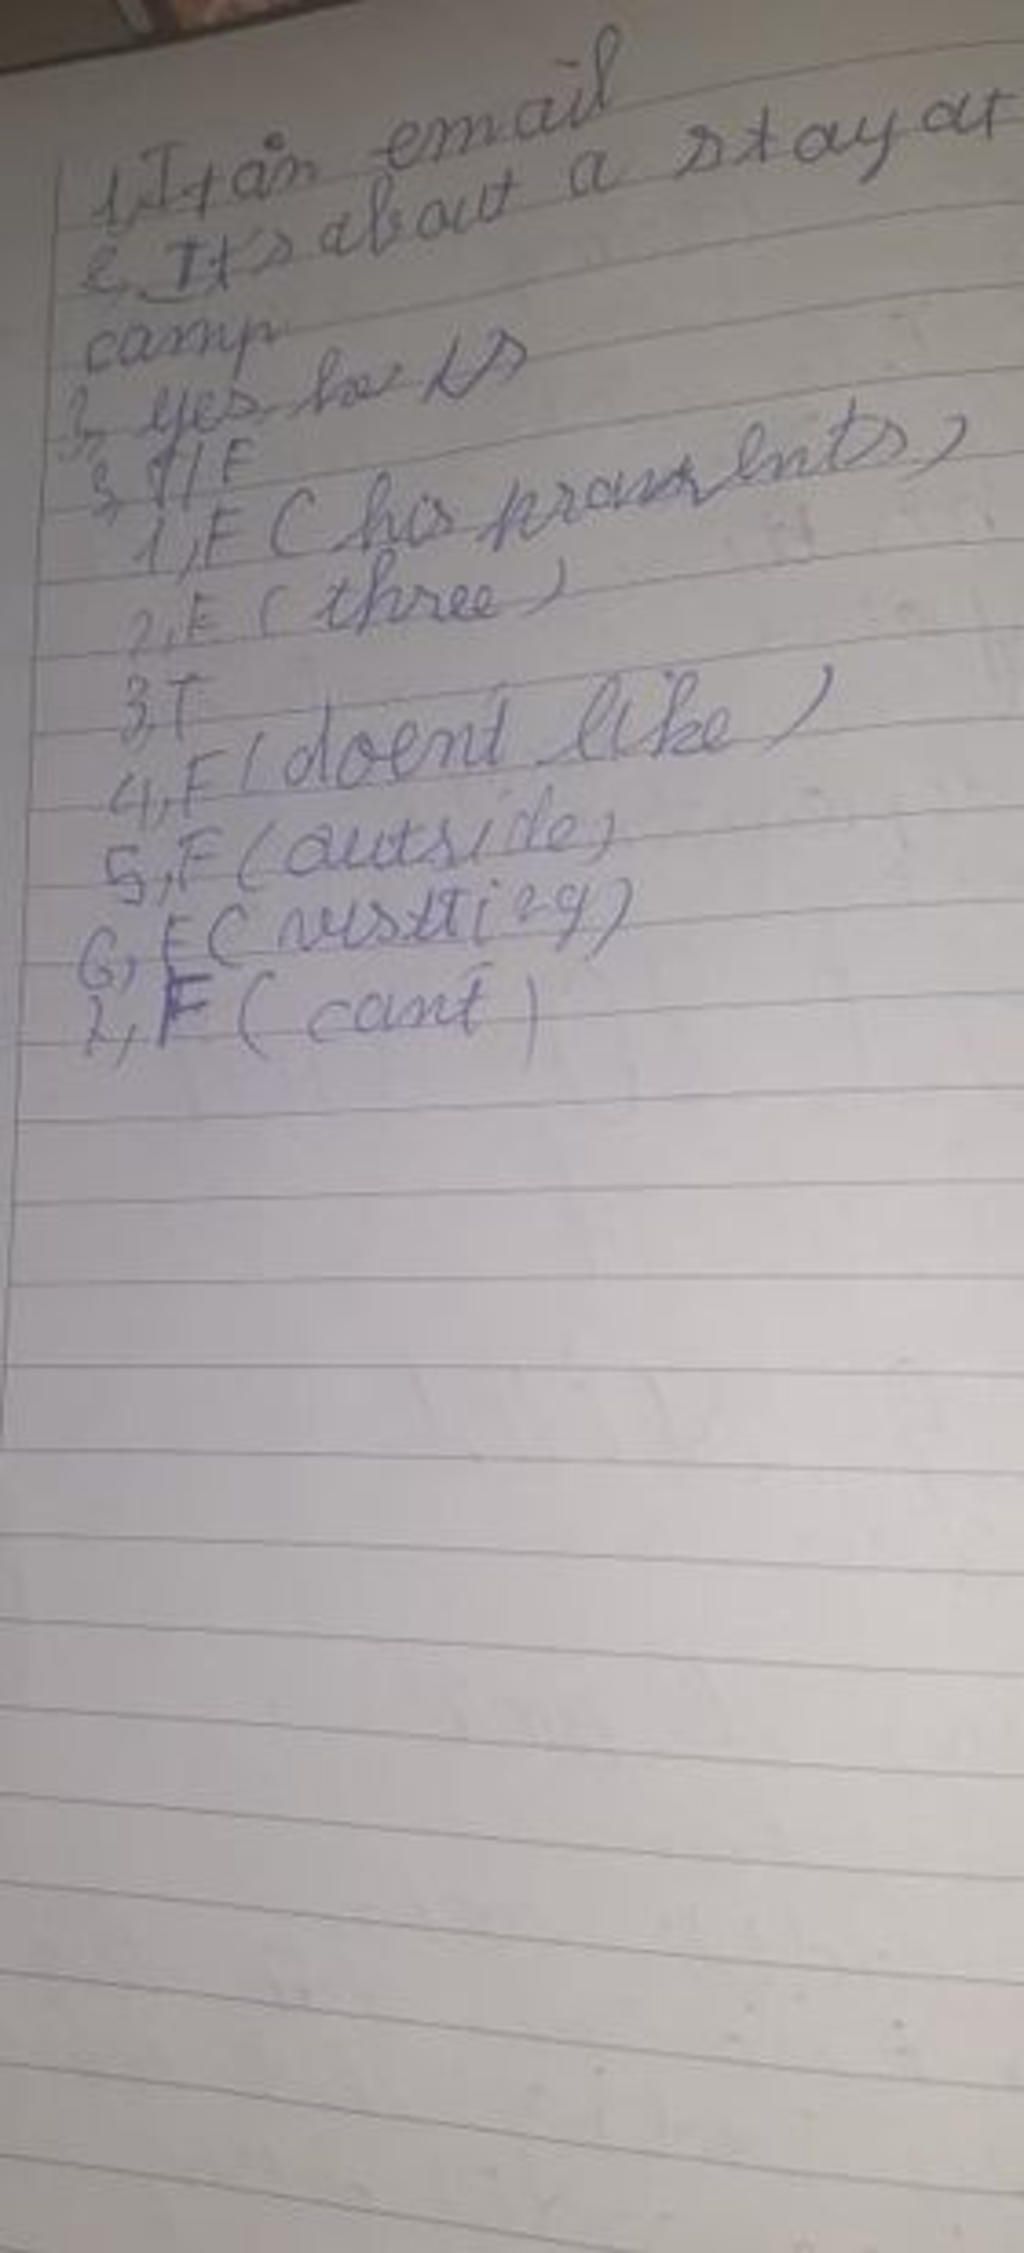 1, It an email
2, It's about a stay at
camp
3, yes he is
3, T/F
1, F ( his
2, F ( three )
3 T
4, F ( doent like )
5, F ( outside )
6, F (
7, F ( cant )